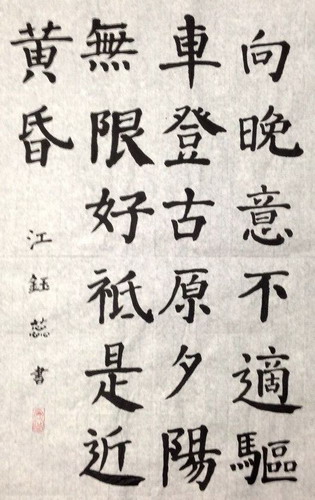 向晚意不適驅
車登古原夕陽
無限好祗是近
黃昏
江鈺蕊書